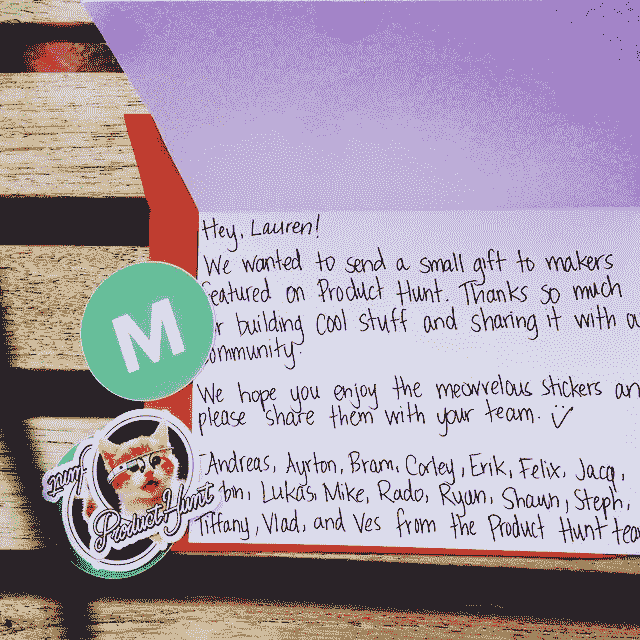 Hey, Lauren!
We wanted to send a small gift to makers
featured on Product Hunt. Thanks so much
building cool stuff and sharing it with
community.
We hope you enjoy the meowvelous stickers
please share them with your team.
Andreas, Ayrton, Bram, Corley, Erik, Felix, Jacq,
Lukas, Mike, Rado, Ryan, Shaun, Steph,
Tiffany, Vlad, and Ves from the Product Hunt
M
Product Hunt